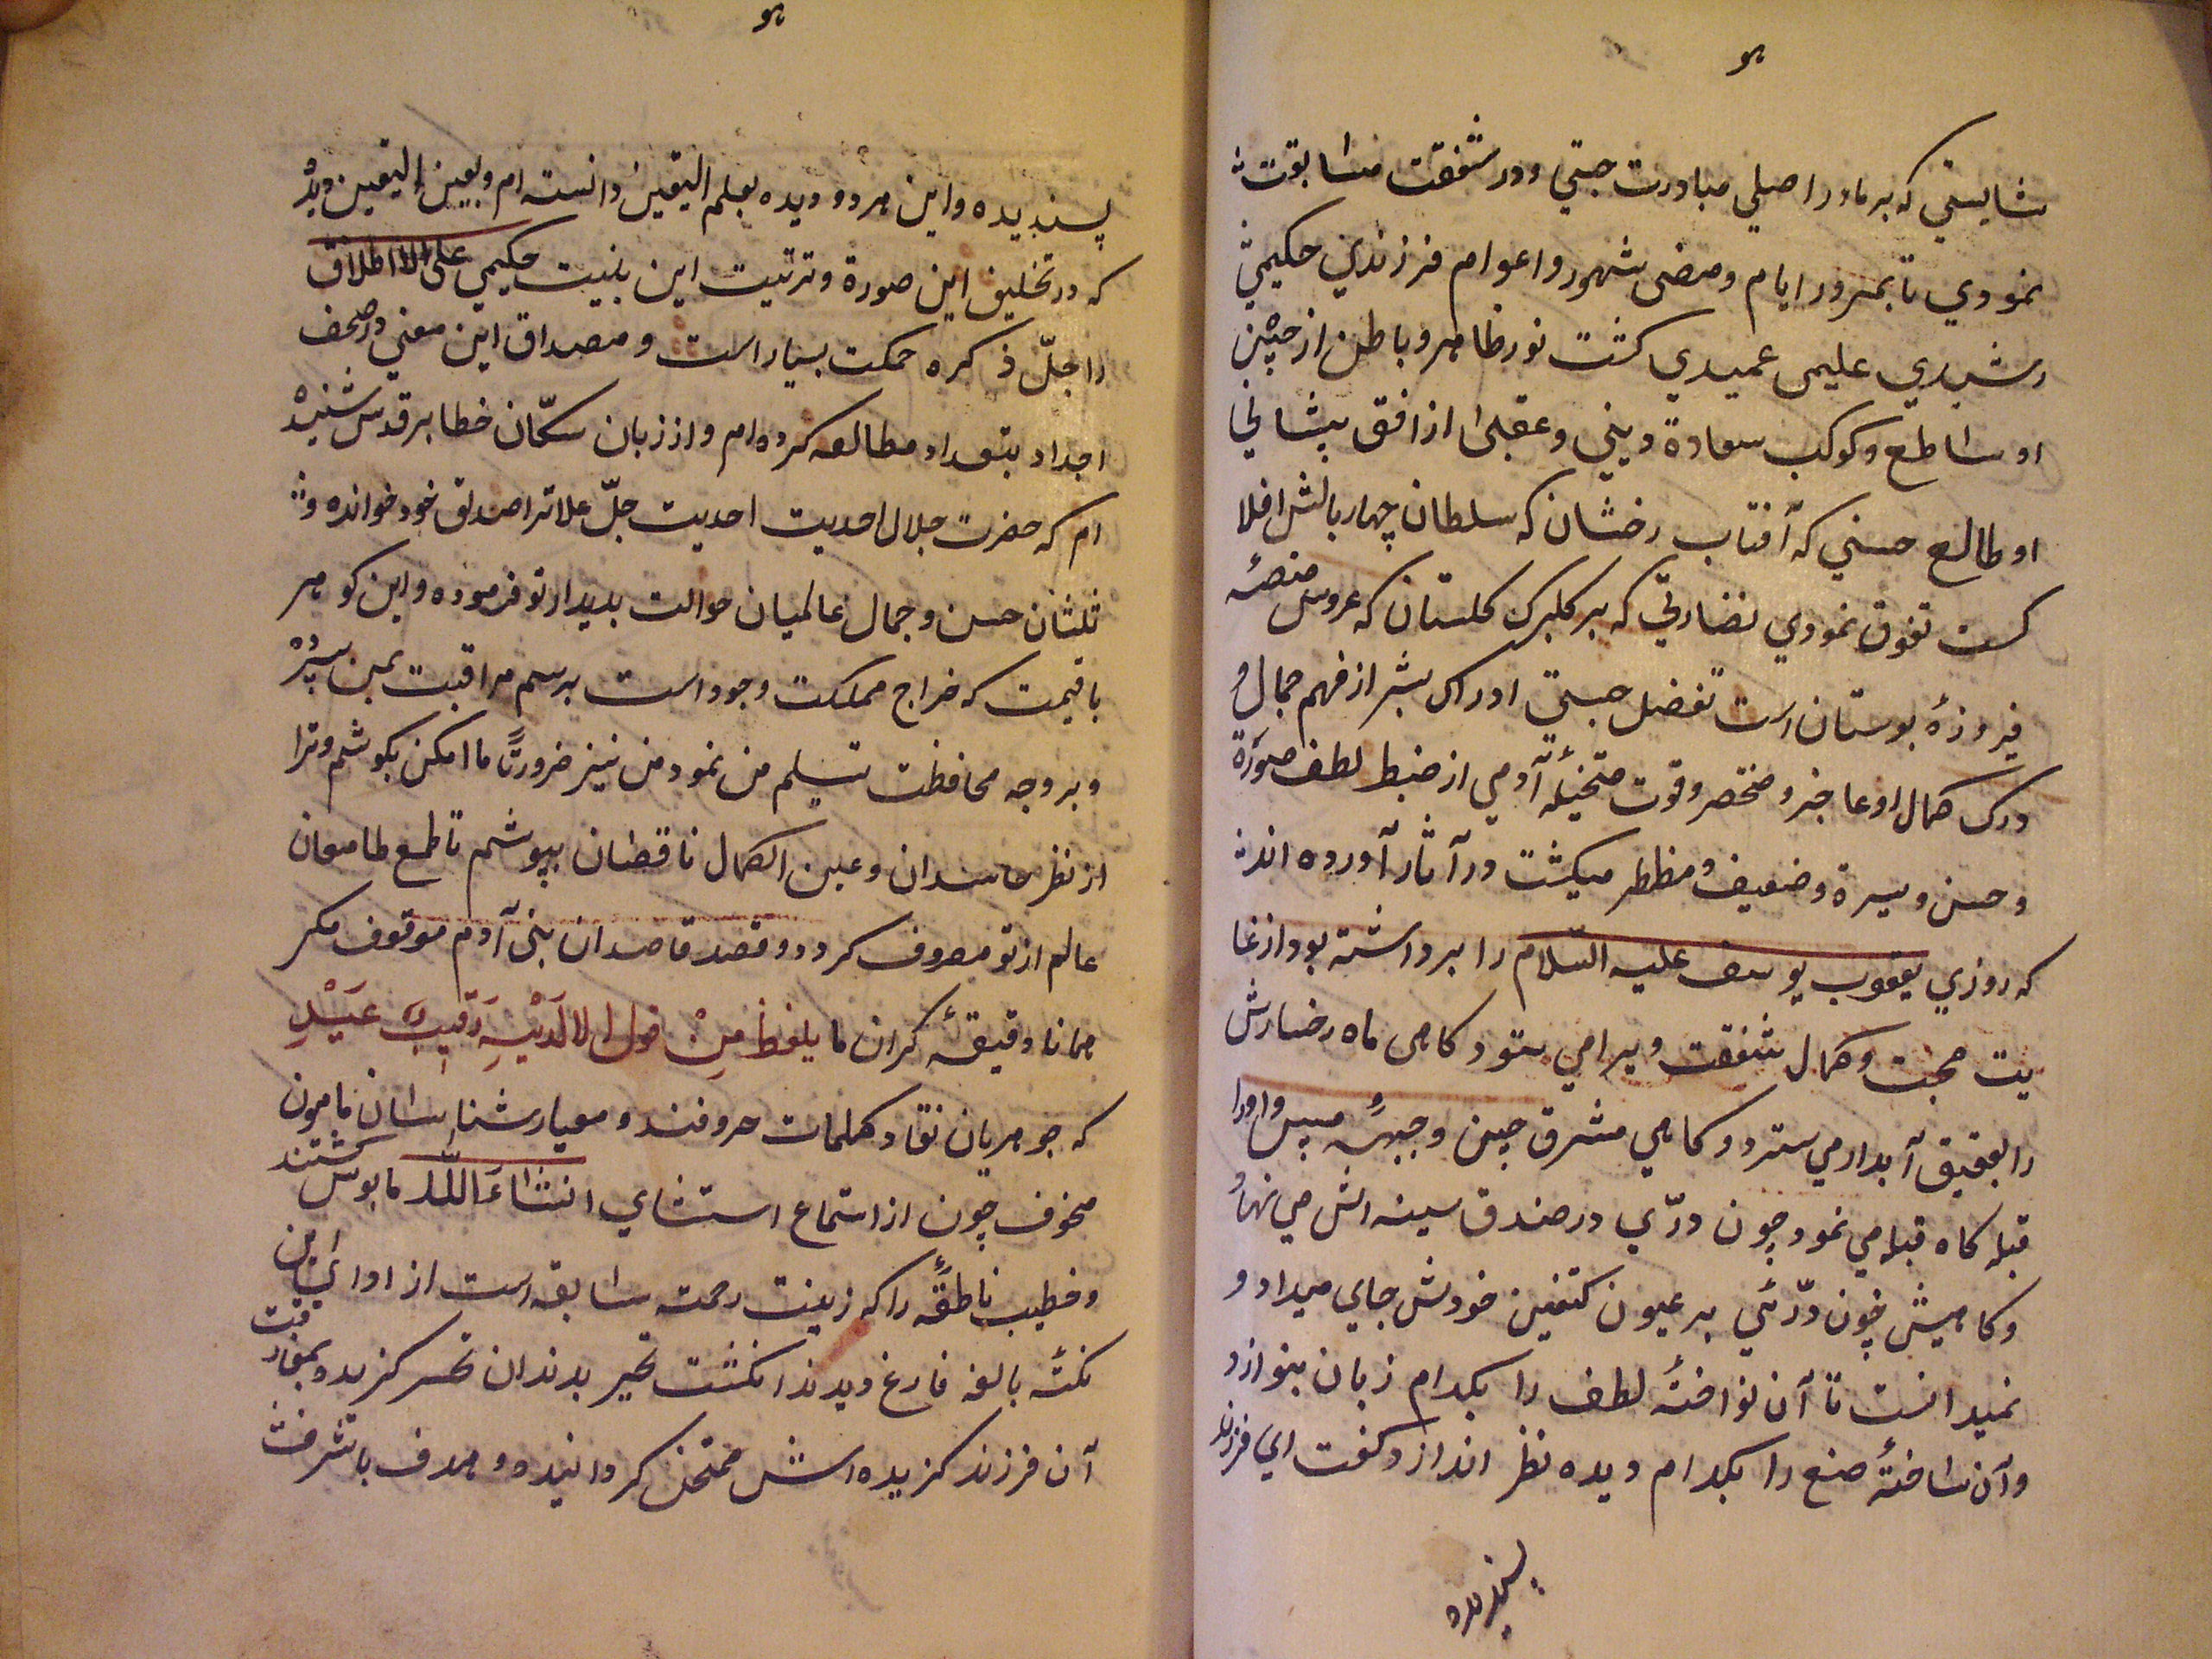 هو
شایستي که بر مادر اصلي مبادرت جستي و در شفقت مسابقت
نمودي تا بمرور ایام ومضی شهور و اعوام فرزندي حکیمي
رشیدي علیمی عمیدي کشت نور ظاهر و باطن از جبین
او ساطع و کوکب سعادة دیني و عقبیٰ از افق پیشاني
او طالع حسني که آفتاب رخشان که سلطان چهار بالش افلا
کست تفوق نمودي نضارتي که بر کلبرك کلستان که عروس منصهٔ
فیروزهٔ بوستان است تفضل جستي ادراك بشر از فهم جمال و
درك کمال او عاجز و مختصر و قوت متخیلهٔ آدمي از ضبط لطف صورة
و حسن و سیرة و ضعیف و مظطر میکشت در آثار آورده اند
که روزي یعقوب یوسف علیه السّلام را برداشته بود از غا
یت محبت و کمال شفقت ویرا مي ستود کاهی ماه رخسارش
را بعقیق آبدار مي سترد و کاهي مشرق جبین و جبهـهٔ مبین او را
قبله کاه قبله مي نمود چون درّي در صندوق سینه اش مي نهاد
و کاهیش چون درّئي بر عیون کتفین خودش جاي میداد و
نمیدانست تا آن نواختهٔ لطف را بکدام زبان بنوازد
وآن ساختهٔ صنع را بکدام دیده نظر اندازد کفت اي فرزند
پسندیده
هو
پسندیده و این هر دو دیده بعلم الیقین دانسته ام و بعین الیقین دید
که در تخلیق این صورة و ترتیت این بنیت حکیمي علی الاطلاق
را جلّ ذکره حکمت بسیار است و مصداق این معني در صحف
اجداد بتعداد مطالعه کرده ام و از زبان سکّان خطایر قدس شنید
ام که حضرت جلال احدیت احدیت جلّ علا ترا صدیق خود خوانده و
ثلثان حسن و جمال عالمیان حوالت بدیدار تو فرموده و این کوهر
با قیمت که خراج مملکت وجود است برسم مراقبت بمن سپرد
و بر وجه محافظت تسلیم من نمود من نیز ضرورتًا ما امکن بکوشم و ترا
از نظر حاسدان و عین الکمال ناقضان بپوشم تا طمع طامعان
عالم از تو مصروف کردد و قصد قاصدان بنی آدم موقوف مکر
همانا دقیقهٔ کران ما یلفظ مِنْ قول الا لَدَیْهِ رَقیبٌ عَتیدٌ
که جوهریان نقاد کلمات حروفند و معیار شناسان نامون
مخوف چون از استماع استثناي انشاءَاللّٰه مایوس کشتند
و خطیب ناطقهٔ را که زینت رحمت سابقه است از اداي این
نکتهٔ بالغه فارغ دیدند انکشت تحیر بدندان تحسر کزیدند و بمفارقت
آن فرزند کزیده اش ممتحن کردانیدند و هدف با شرفت